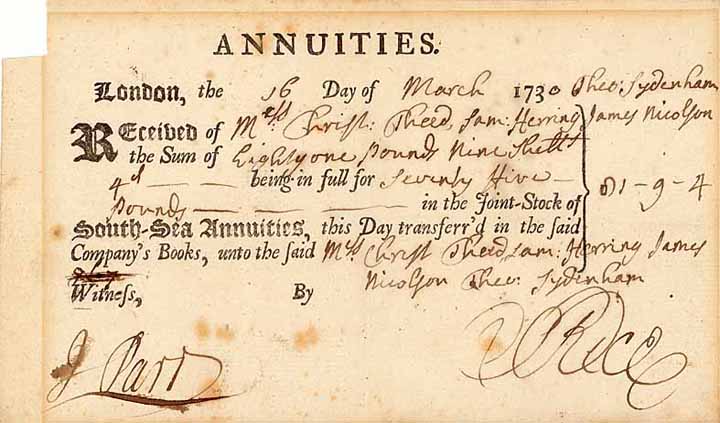 ANNUITIES.
London, the 16 Day of March 1730 Theo: Sydenham
REceived of Mess^rs Christ: Theed, Sam: Herring James Nicolson
the Sum of Eighty one Pounds Nine Shill^s
4^d — being in full for Seventy Five — 81-9-4
Pounds — in the Joint-Stock of
South-Sea Annuities, this Day transferr'd in the said
Company's Books, unto the said M^rs Christ Theed, Sam: Herring James
Nicolson Theo: Sydenham
Witness, By
J Parr
Rice